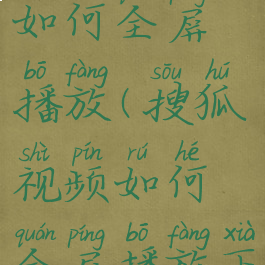 如何全屏
bō fàng sōu hú
播放(搜狐
shì pín rú hé
视频如何
quán píng bō fàng xià
全屏播放下